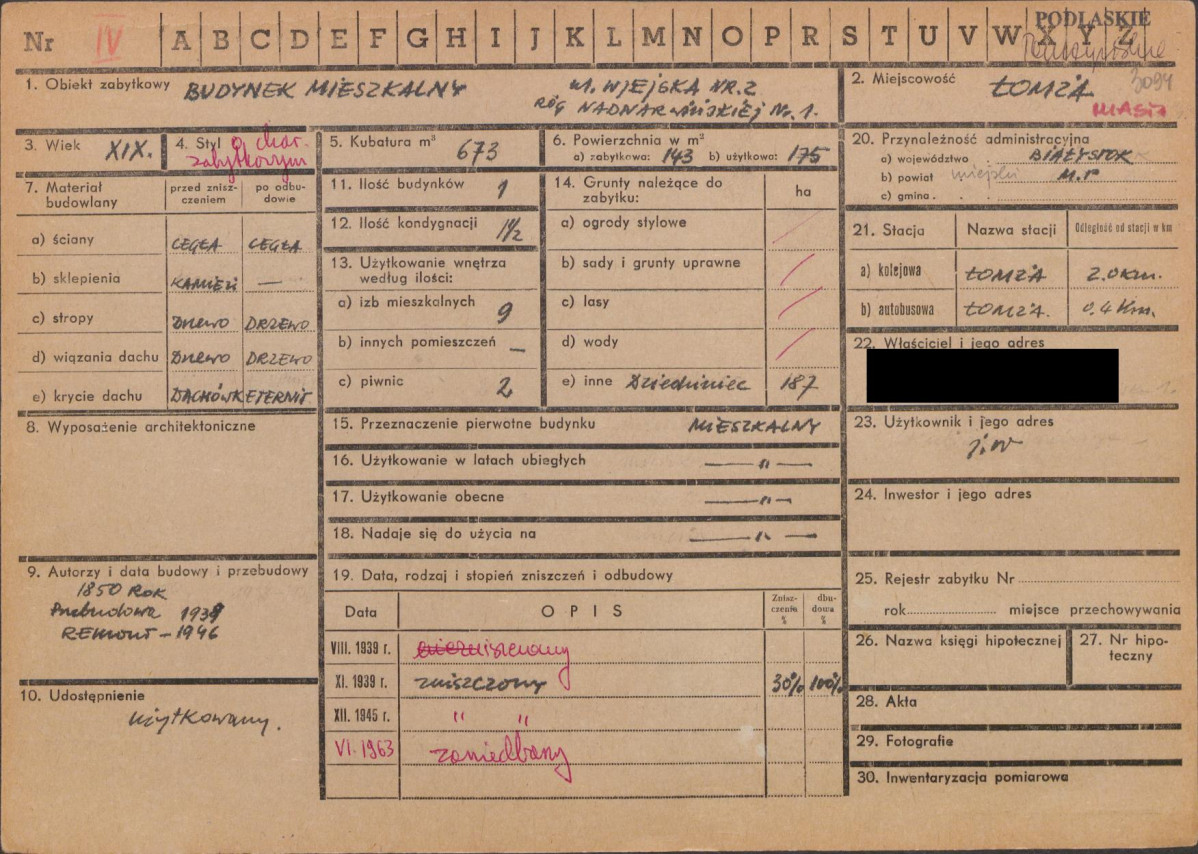 Nr IV A B C D E F G H I J K L M N O P R S T U V W X Y Z PODLASKIE
1. Obiekt zabytkowy BUDYNEK MIESZKALNY ul. WIEJSKA NR. 2
RÓG NADNARWIAŃSKIEJ Nr. 1.
2. Miejscowość ŁOMŻA 3094
MIASTO
3. Wiek XIX.
4. Styl o char.
zabytkowym
5. Kubatura m³ 673
6. Powierzchnia w m²
a) zabytkowa: 143 b) użytkowa: 175
7. Materiał budowlany
przed zniszczeniem
po odbudowie
a) ściany CEGŁA CEGŁA
b) sklepienia KAMIEŃ —
c) stropy DRZEWO DRZEWO
d) wiązania dachu DRZEWO DRZEWO
e) krycie dachu DACHÓWK ETERNIT
8. Wyposażenie architektoniczne
9. Autorzy i data budowy i przebudowy
1850 ROK
Przebudowa 1939
REMONT – 1946
10. Udostępnienie
użytkowany.
11. Ilość budynków 1
12. Ilość kondygnacji 1 1/2
13. Użytkowanie wnętrza
według ilości:
a) izb mieszkalnych 9
b) innych pomieszczeń —
c) piwnic 2
14. Grunty należące do
zabytku: ha
a) ogrody stylowe /
b) sady i grunty uprawne /
c) lasy /
d) wody /
e) inne Dziedziniec 187
15. Przeznaczenie pierwotne budynku MIESZKALNY
16. Użytkowanie w latach ubiegłych — " —
17. Użytkowanie obecne — " —
18. Nadaje się do użycia na — " —
19. Data, rodzaj i stopień zniszczeń i odbudowy
Data OPIS Zniszczenia % dbudowa %
VIII. 1939 r.
XI. 1939 r. zniszczony 30% 100%
XII. 1945 r. " "
VI. 1963 zaniedbany
20. Przynależność administracyjna
a) województwo BIAŁYSTOK
b) powiat miejski M.P
c) gmina . . .
21. Stacja Nazwa stacji Odległość od stacji w km
a) kolejowa ŁOMŻA 2.0 km.
b) autobusowa ŁOMŻA. 0.4 Km.
22. Właściciel i jego adres
23. Użytkownik i jego adres
j.w
24. Inwestor i jego adres
25. Rejestr zabytku Nr
rok miejsce przechowywania
26. Nazwa księgi hipotecznej
27. Nr hipoteczny
28. Akta
29. Fotografie
30. Inwentaryzacja pomiarowa